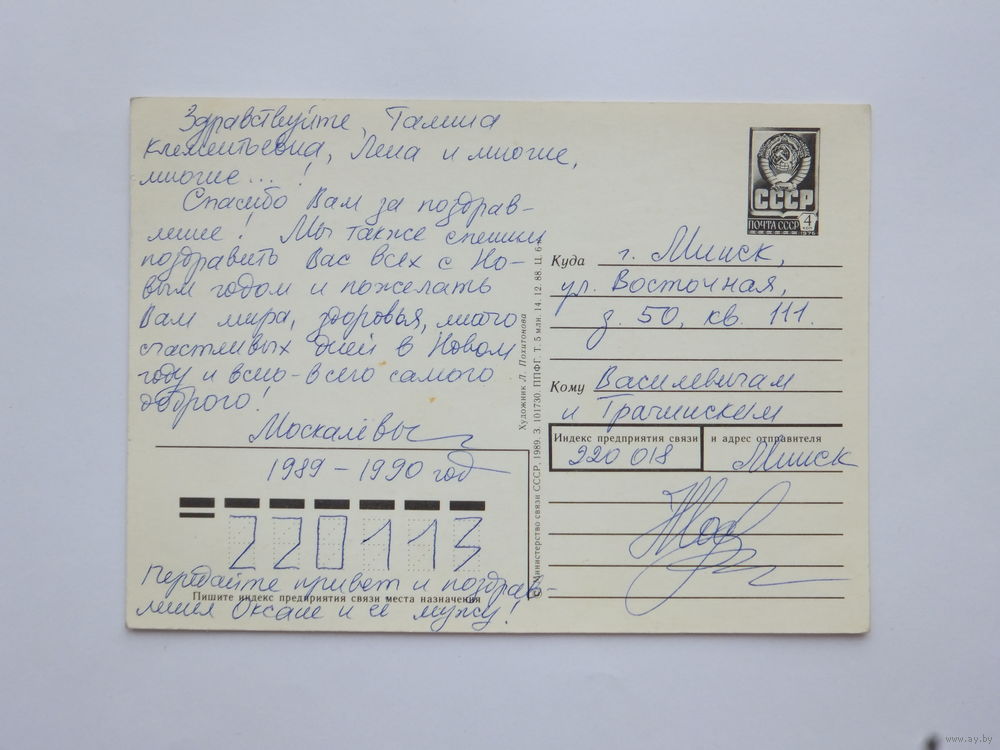 Здравствуйте, Галина
Клементьевна, Лена и многие,
многие... !
Спасибо Вам за поздрав-
ление! Мы также спешим
поздравить Вас всех с Но-
вым годом и пожелать
Вам мира, здоровья, много
счастливых дней в Новом
году и всего-всего самого
доброго!
Москалёвы
1989 – 1990 год
220113
Передайте привет и поздрав-
Пишите индекс предприятия связи места назначения
ления Оксане и её мужу!
© Министерство связи СССР, 1989. З. 101730. ППФГ. Т. 5 млн. 14. 12. 88. Ц. 6 к.
Художник Л. Похитонова
СССР
ПОЧТА СССР 4 коп
1976
Куда г. Минск,
ул. Восточная,
д. 50, кв. 111.
Кому Василевичам
и Трачинским
Индекс предприятия связи и адрес отправителя
220 018 Минск
www.ay.by